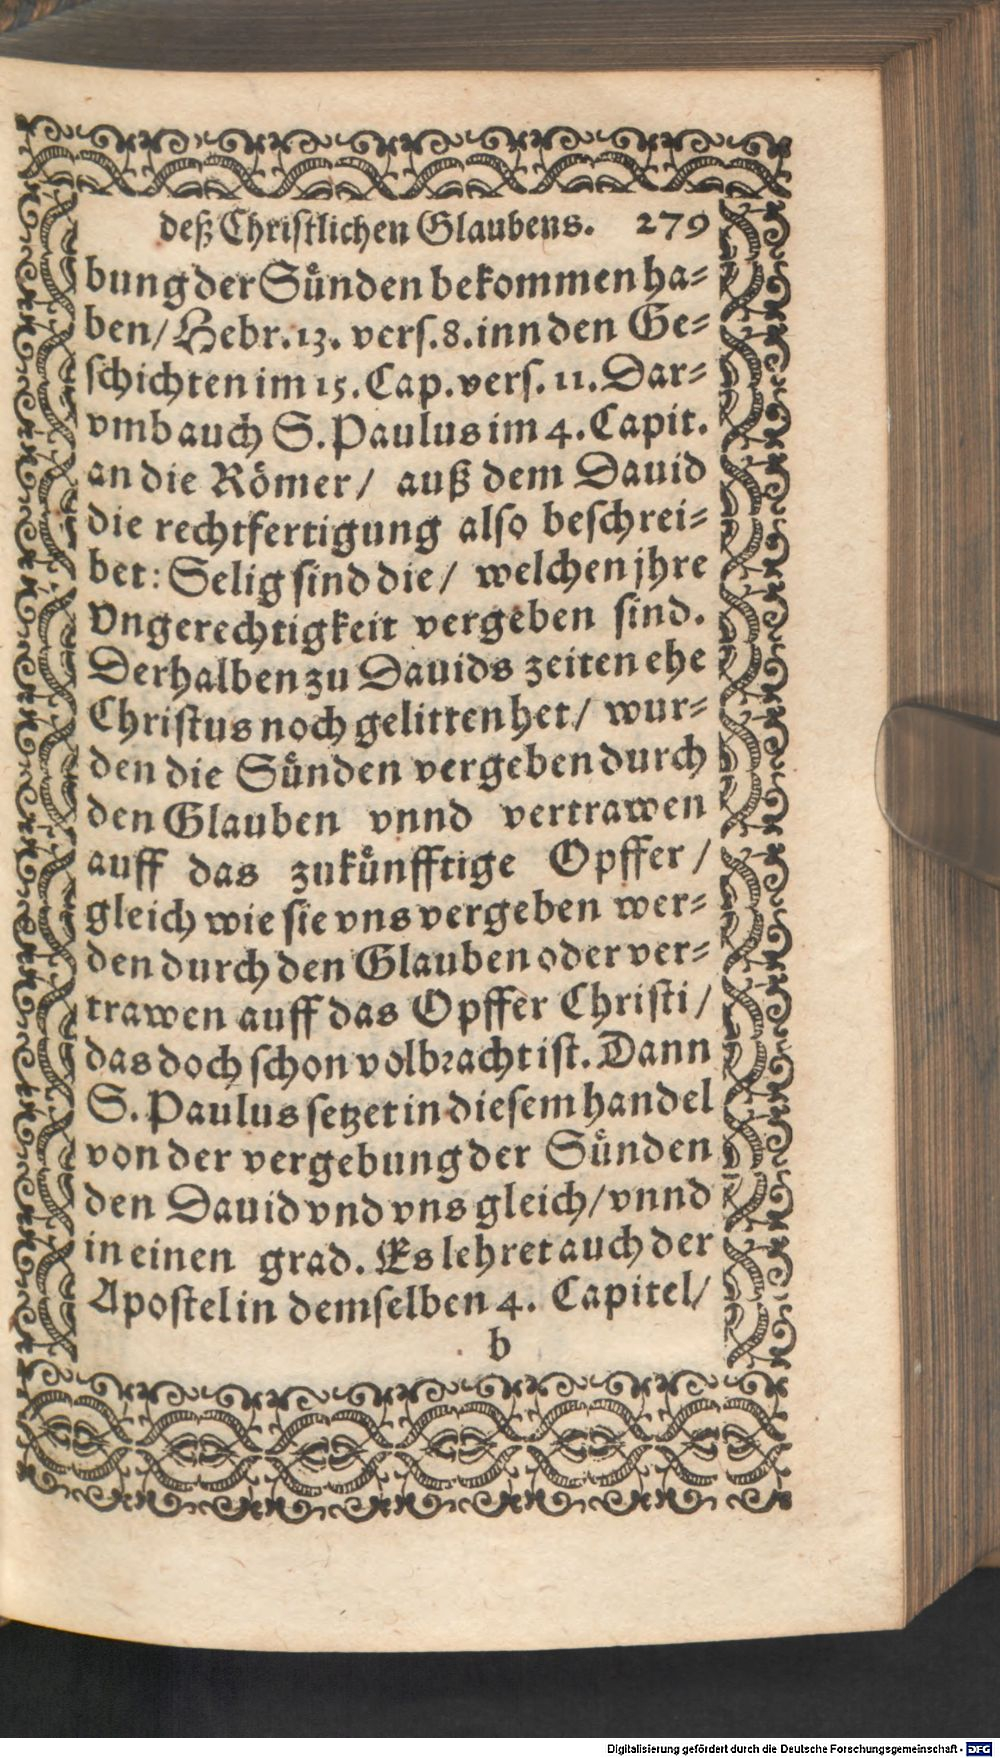 deß Christlichen Glaubens. 279
bung der Sünden bekommen ha=
ben/ Hebr. 13. vers. 8. inn den Ge=
schichten im 15. Cap. vers. 11. Dar=
vmb auch S. Paulus im 4. Capit.
an die Römer/ auß dem Dauid
die rechtfertigung also beschrei=
bet: Selig sind die/ welchen jhre
Vngerechtigkeit vergeben sind.
Derhalben zu Dauids zeiten ehe
Christus noch gelitten het/ wur=
den die Sünden vergeben durch
den Glauben vnnd vertrawen
auff das zukünfftige Opffer/
gleich wie sie vns vergeben wer=
den durch den Glauben oder ver=
trawen auff das Opffer Christi/
das doch schon volbracht ist. Dann
S. Paulus setzet in diesem handel
von der vergebung der Sünden
den Dauid vnd vns gleich/ vnnd
in einen grad. Es lehret auch der
Apostel in demselben 4. Capitel/
b
Digitalisierung gefördert durch die Deutsche Forschungsgemeinschaft - DFG